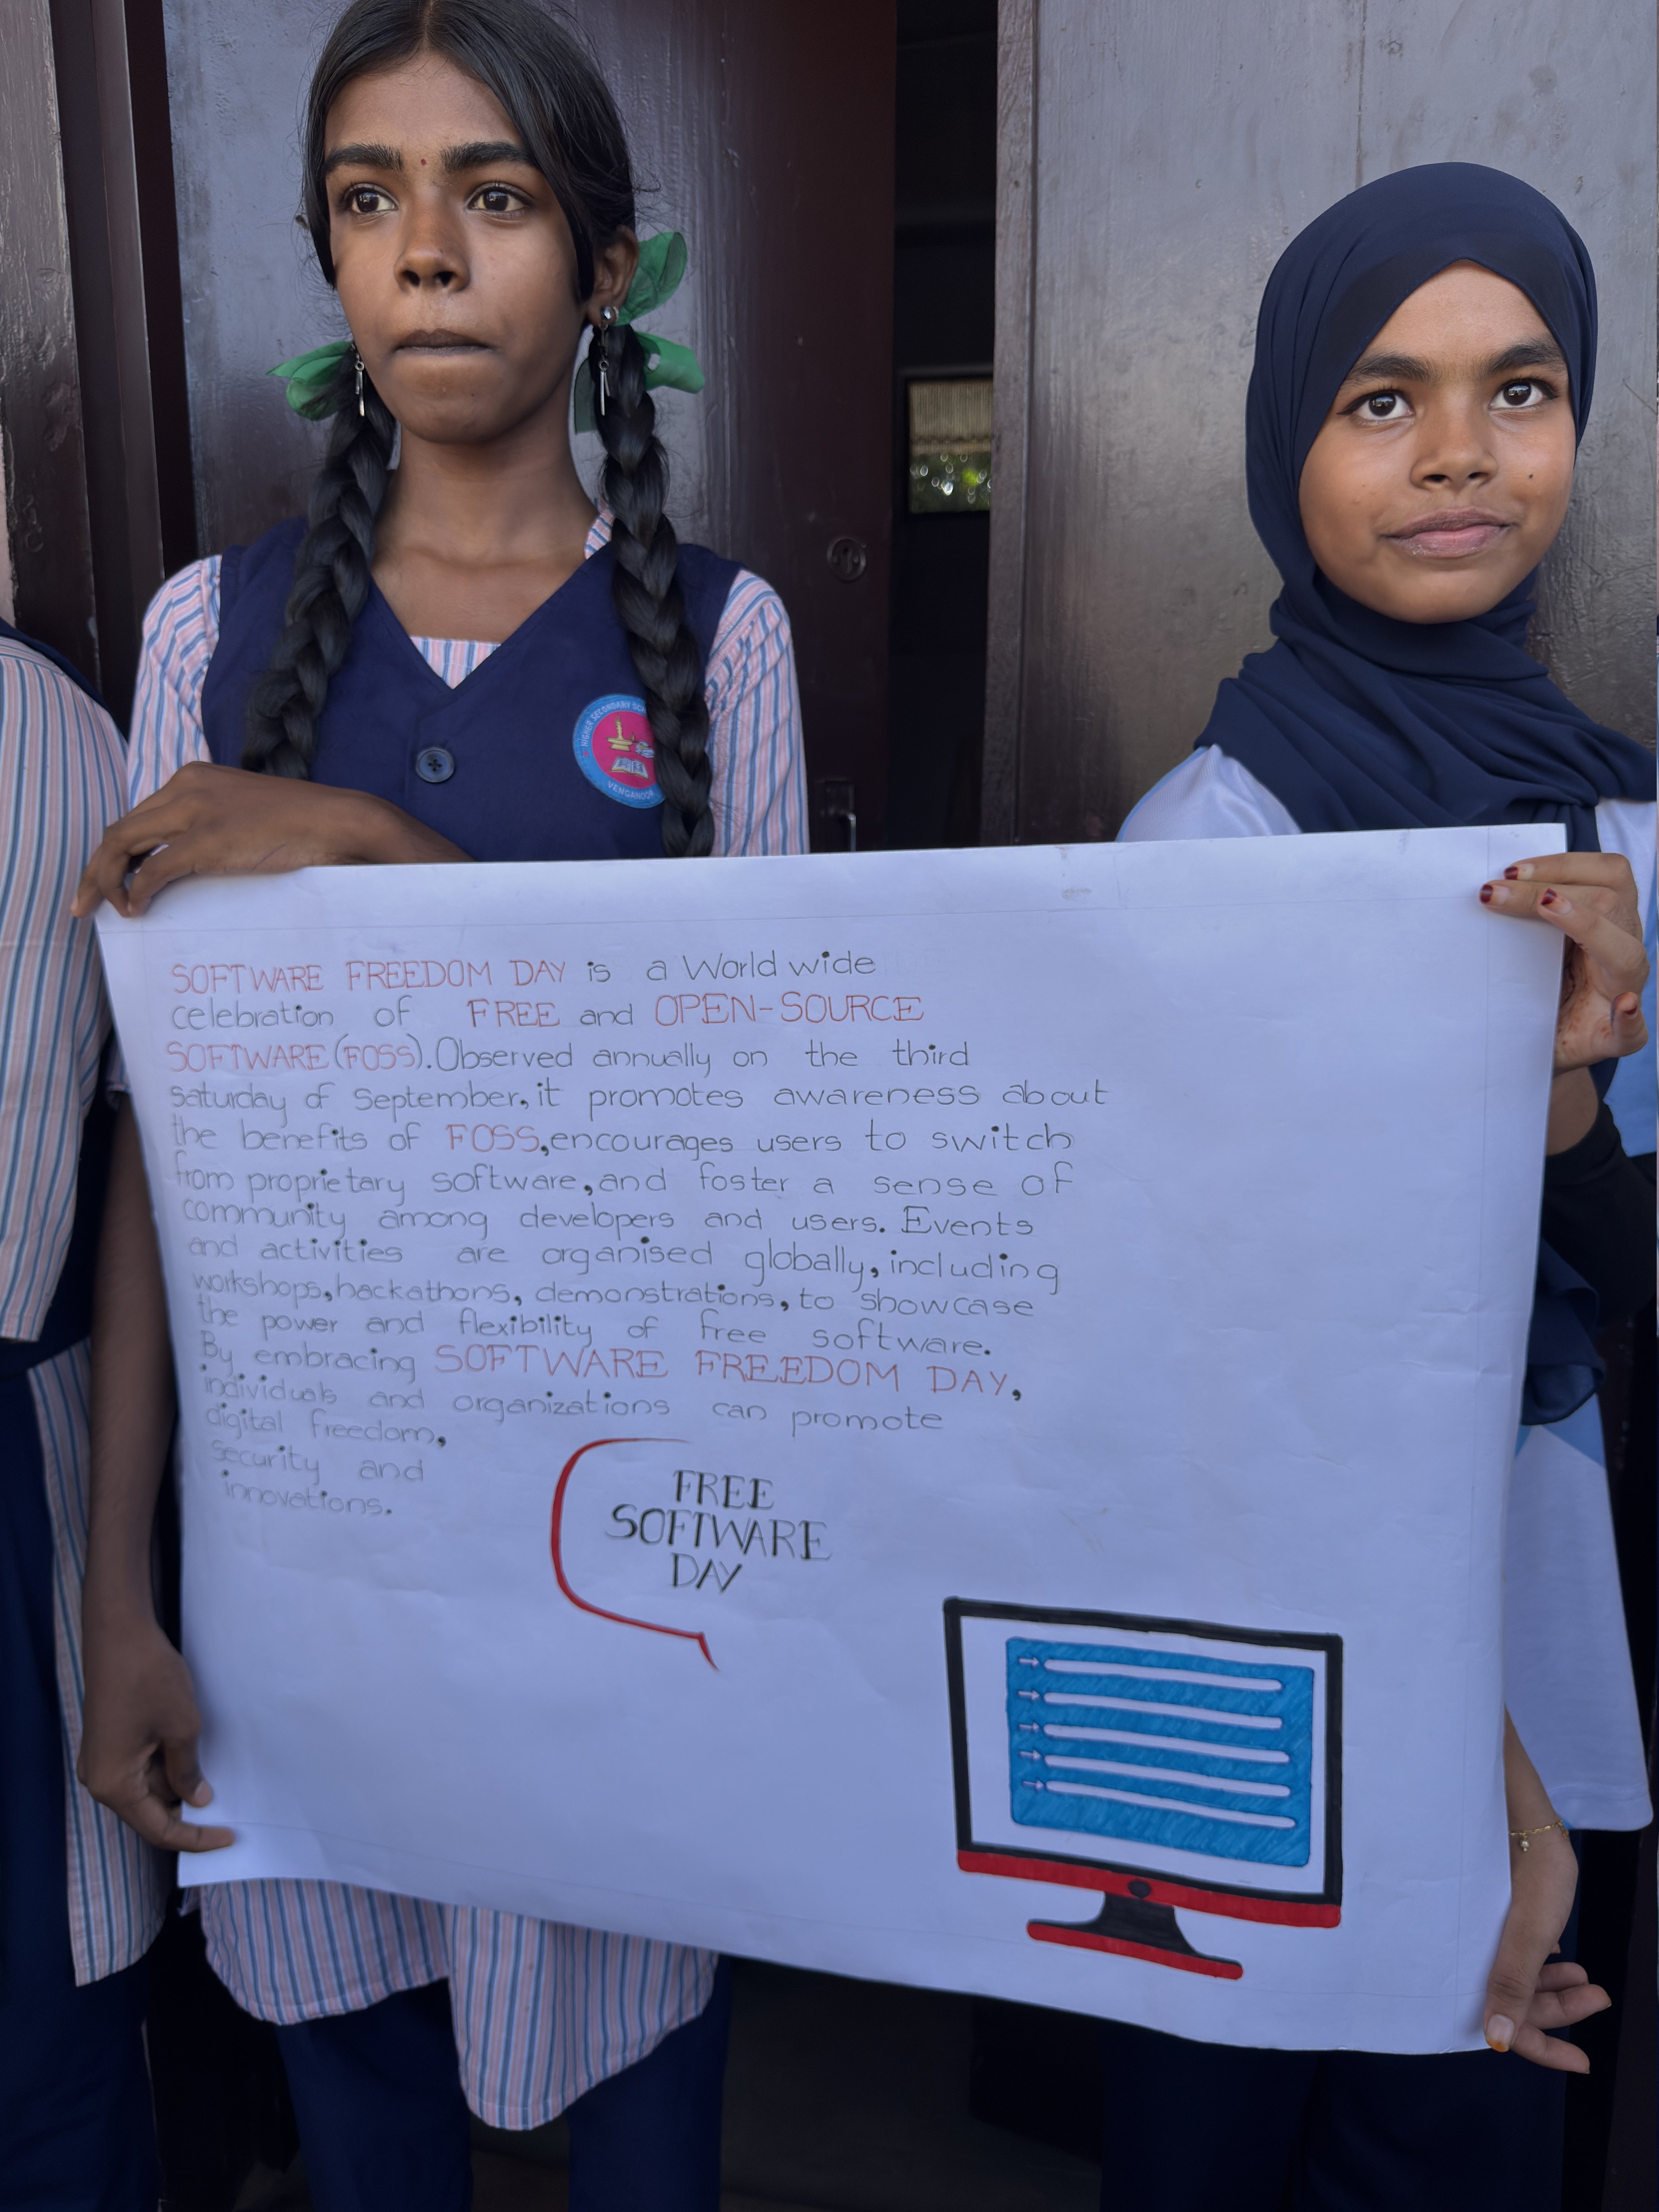 HIGHER SECONDARY
VENGANOOR
SOFTWARE FREEDOM DAY is a World wide
celebration of FREE and OPEN-SOURCE
SOFTWARE (FOSS). Observed annually on the third
saturday of September, it promotes awareness about
the benefits of FOSS, encourages users to switch
from proprietary software, and foster a sense of
community among developers and users. Events
and activities are organised globally, including
workshops, hackathons, demonstrations, to showcase
the power and flexibility of free software.
By embracing SOFTWARE FREEDOM DAY,
individuals and organizations can promote
digital freedom,
security and
innovations.
FREE
SOFTWARE
DAY